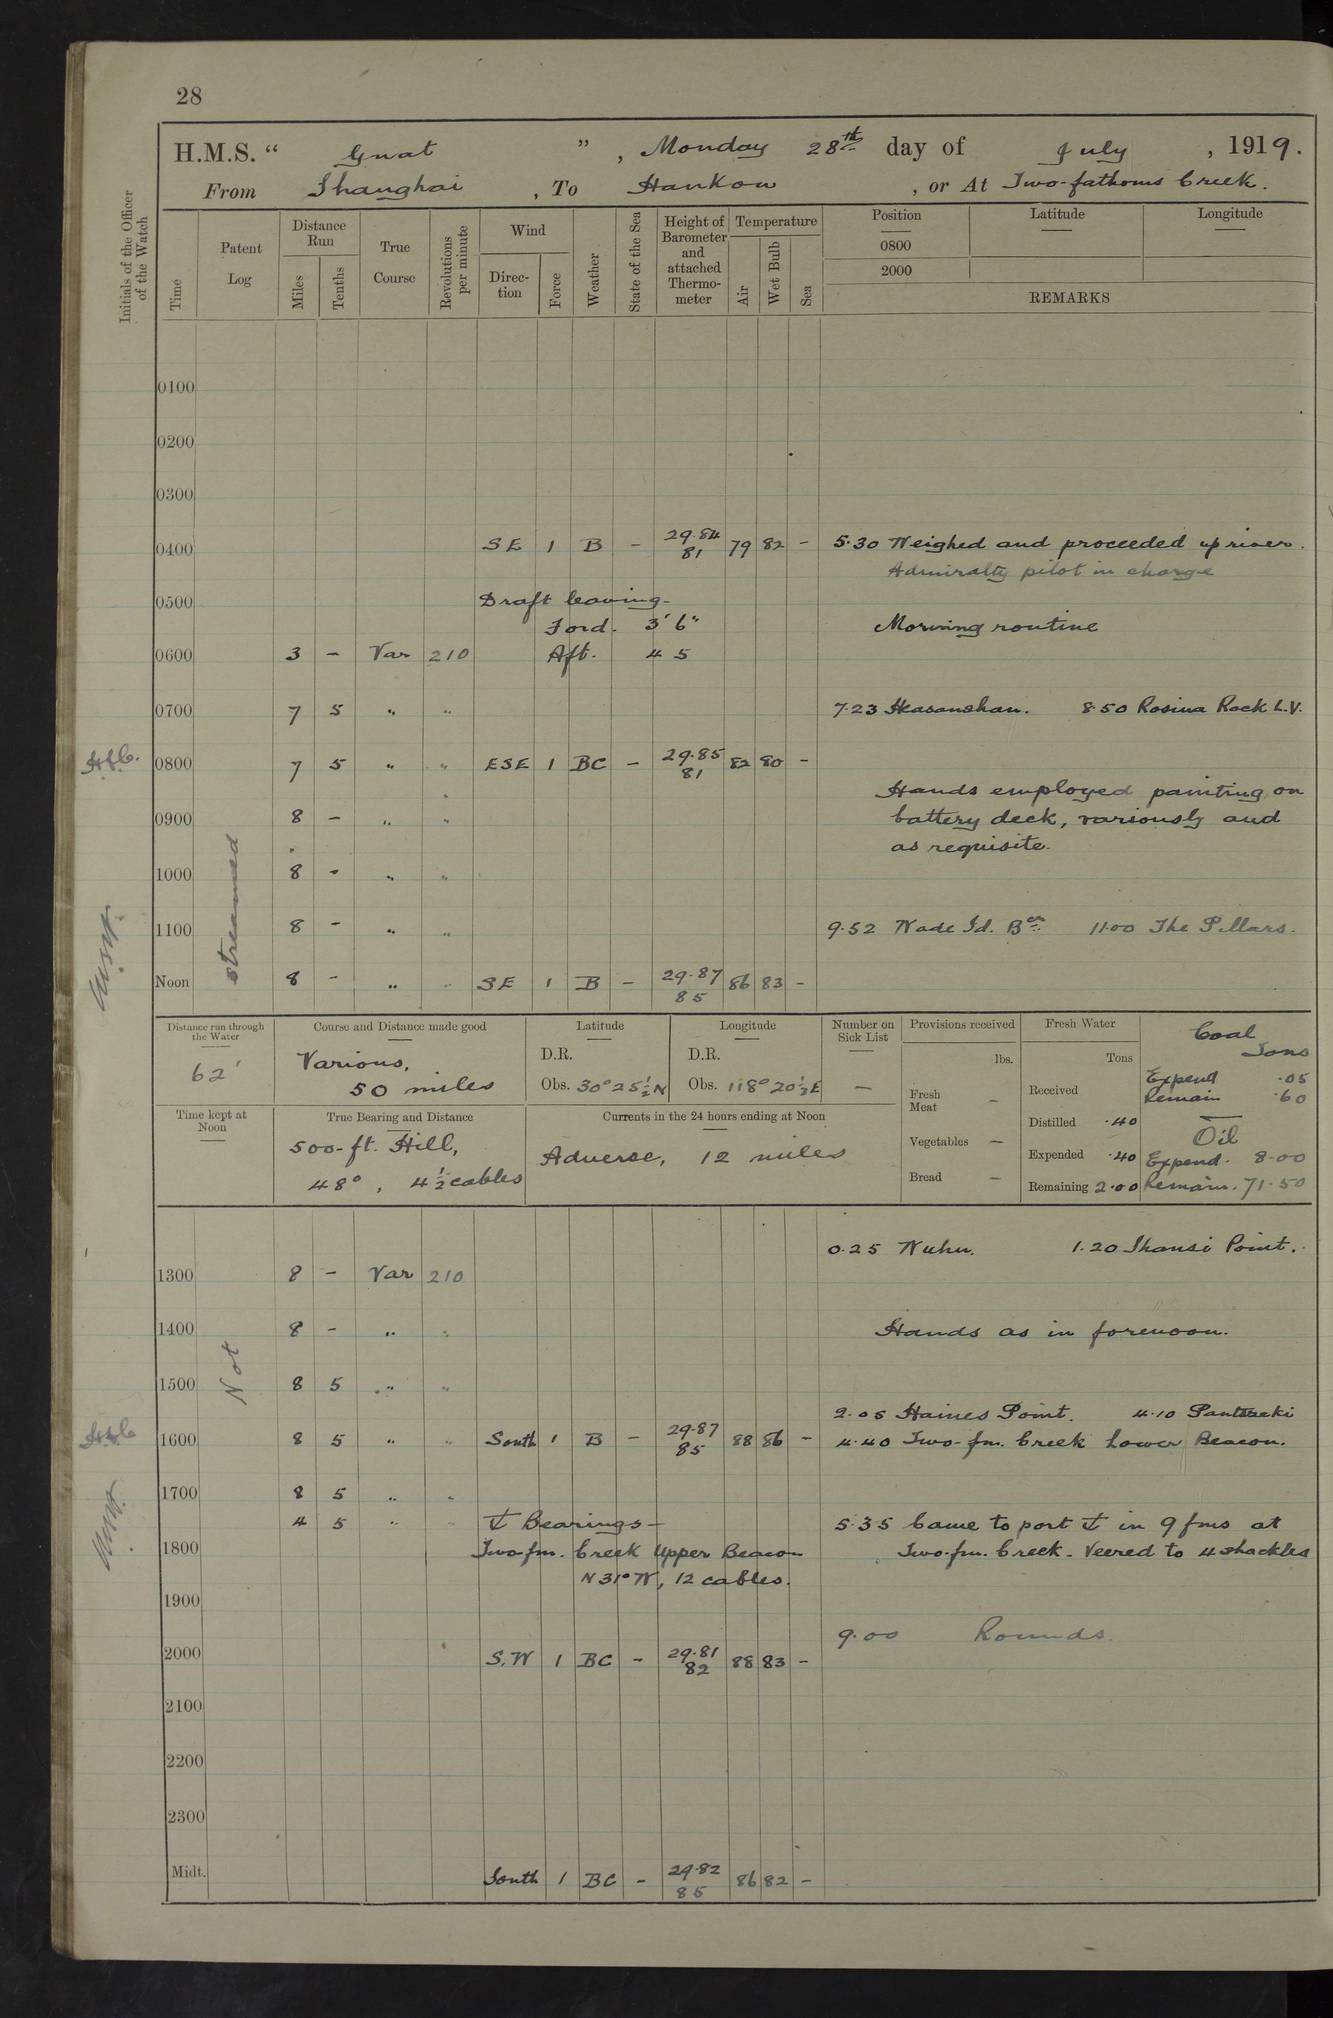 28
H.M.S. “ Gnat ” , Monday 28th day of July , 1919.
From Shanghai , To Hankow , or At Two-fathoms Creek.
Initials of the Officer of the Watch
Time
Patent Log
Distance Run
Miles
Tenths
True Course
Revolutions per minute
Wind
Direction
Force
Weather
State of the Sea
Height of Barometer and attached Thermometer
Temperature
Air
Wet Bulb
Sea
Position
Latitude
Longitude
0800
2000
REMARKS
0100
0200
0300
0400 SE 1 B - 29.84 81 79 82 - 5.30 Weighed and proceeded up river.
Admiralty pilot in charge
0500 Draft leaving-
Ford. 3' 6"
Morning routine
0600 3 - Var 210 Aft. 4 5
0700 7 5 " " 7.23 8.50 Rosina Rock L.V.
0800 7 5 " " ESE 1 BC - 29.85 81 82 80 -
Hands employed painting on
0900 8 - " " battery deck, variously and
as requisite.
1000 8 - " "
1100 8 - " " 9.52 Wade Id. Bcn 11.00 The Pillars.
Noon 8 - " " SE 1 B - 29.87 85 86 83 -
Not streamed
Distance run through the Water
62'
Course and Distance made good
Various,
50 miles
Latitude
D.R.
Obs. 30°25½'N
Longitude
D.R.
Obs. 118°20½'E
Number on Sick List
-
Provisions received
lbs.
Fresh Meat -
Vegetables -
Bread -
Fresh Water
Tons
Received
Distilled .40
Expended .40
Remaining 2.00
Coal
Tons
Expend .05
Remain .60
Oil
Expend. 8.00
Remain. 71.50
Time kept at Noon
True Bearing and Distance
500-ft. Hill,
48°, 4½ cables
Currents in the 24 hours ending at Noon
Adverse, 12 miles
0.25 Wuhu. 1.20 Shansi Point.
1300 8 - Var 210
1400 8 - " " Hands as in forenoon.
1500 8 5 " "
2.05 Haines Point. 4.10
1600 8 5 " " South 1 B - 29.87 85 88 86 - 4.40 Two-fm. Creek Lower Beacon.
1700 8 5 " "
4 5 " " ⚓ Bearings- 5.35 Came to port ⚓ in 9 fms at
1800 Two-fm. Creek Upper Beacon Two-fm. Creek. Veered to 4 shackles
N 31° W, 12 cables.
1900
9.00 Rounds.
2000 S.W 1 BC - 29.81 82 88 83 -
2100
2200
2300
Midt. South 1 BC - 29.82 85 86 82 -